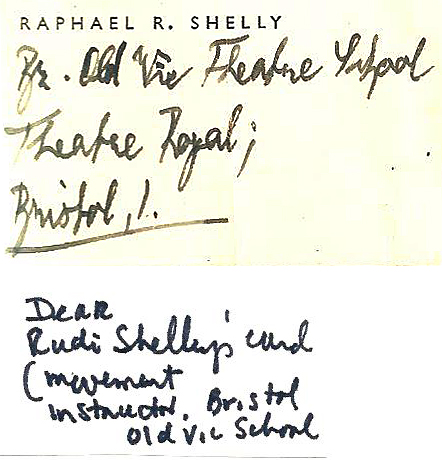 RAPHAEL R. SHELLY
Br. Old Vic Theatre School
Theatre Royal,
Bristol, 1.
Dear
Rudi Shelly's card
(movement
instructor. Bristol
Old Vic School